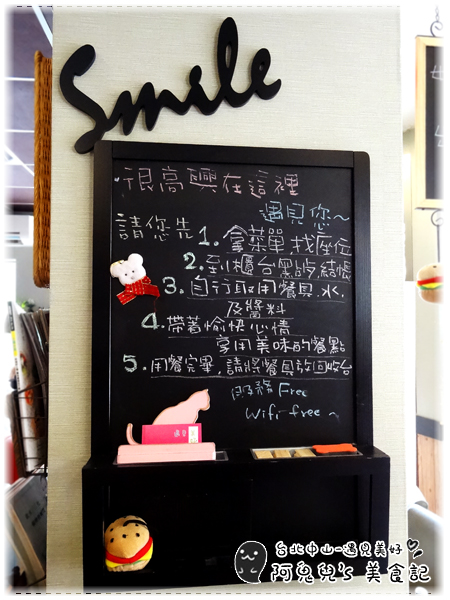 Smile
很高興在這裡
遇見您~
請您先 1. 拿菜單 找座位
2. 到櫃台點餐結帳
3. 自行取用餐具.水.
及醬料
4. 帶著愉快心情
享用美味的餐點
5. 用餐完畢,請將餐具放回收台
服務 Free
Wifi free ~
台北中山-遇見美好
阿兔兒's 美食記